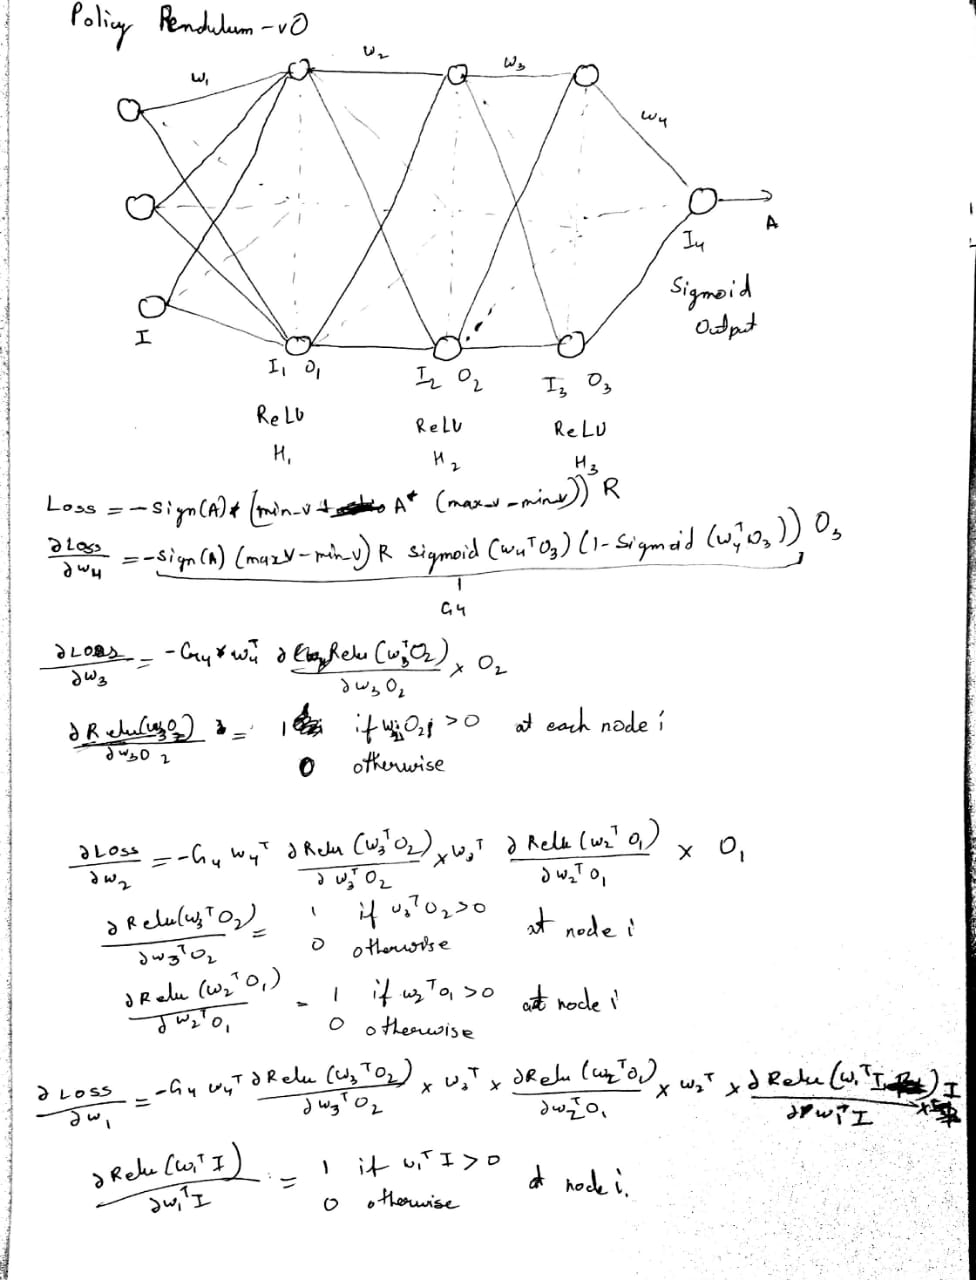 Policy Pendulum-v0
w₁ w₂ w₃
w₄
A
I₄
Sigmoid
Output
I
I₁ O₁ I₂ O₂ I₃ O₃
ReLU ReLU ReLU
H₁ H₂ H₃
Loss = -sign(A)* (min_v + A* (max_v - min_v)) R
∂Loss/∂w₄ = -sign(A) (maxV - min_v) R sigmoid (w₄ᵀO₃) (1 - Sigmoid (w₄ᵀO₃)) O₃
G₄
∂Loss/∂w₃ = -G₄ * w₄ᵀ ∂Relu (w₃ᵀO₂)/∂w₃O₂ × O₂
∂Relu(w₃O₂)/∂w₃O₂ = 1 if wᵢⱼO₂ⱼ > 0 at each node i
0 otherwise
∂Loss/∂w₂ = -G₄ w₄ᵀ ∂Relu (w₃ᵀO₂)/∂w₃ᵀO₂ × w₃ᵀ ∂Relu (w₂ᵀO₁)/∂w₂ᵀO₁ × O₁
∂Relu(w₃ᵀO₂)/∂w₃ᵀO₂ = 1 if w₃ᵀO₂>0 at node i
0 otherwise
∂Relu (w₂ᵀO₁)/∂w₂ᵀO₁ = 1 if w₂ᵀO₁ >0 at node i
0 otherwise
∂Loss/∂w₁ = -G₄ w₄ᵀ ∂Relu (w₃ᵀO₂)/∂w₃ᵀO₂ × w₃ᵀ × ∂Relu (w₂ᵀO₁)/∂w₂ᵀO₁ × w₂ᵀ × ∂Relu (w₁ᵀI)/∂w₁ᵀI × I
∂Relu (w₁ᵀI)/∂w₁ᵀI = 1 if w₁ᵀI > 0 at node i.
0 otherwise